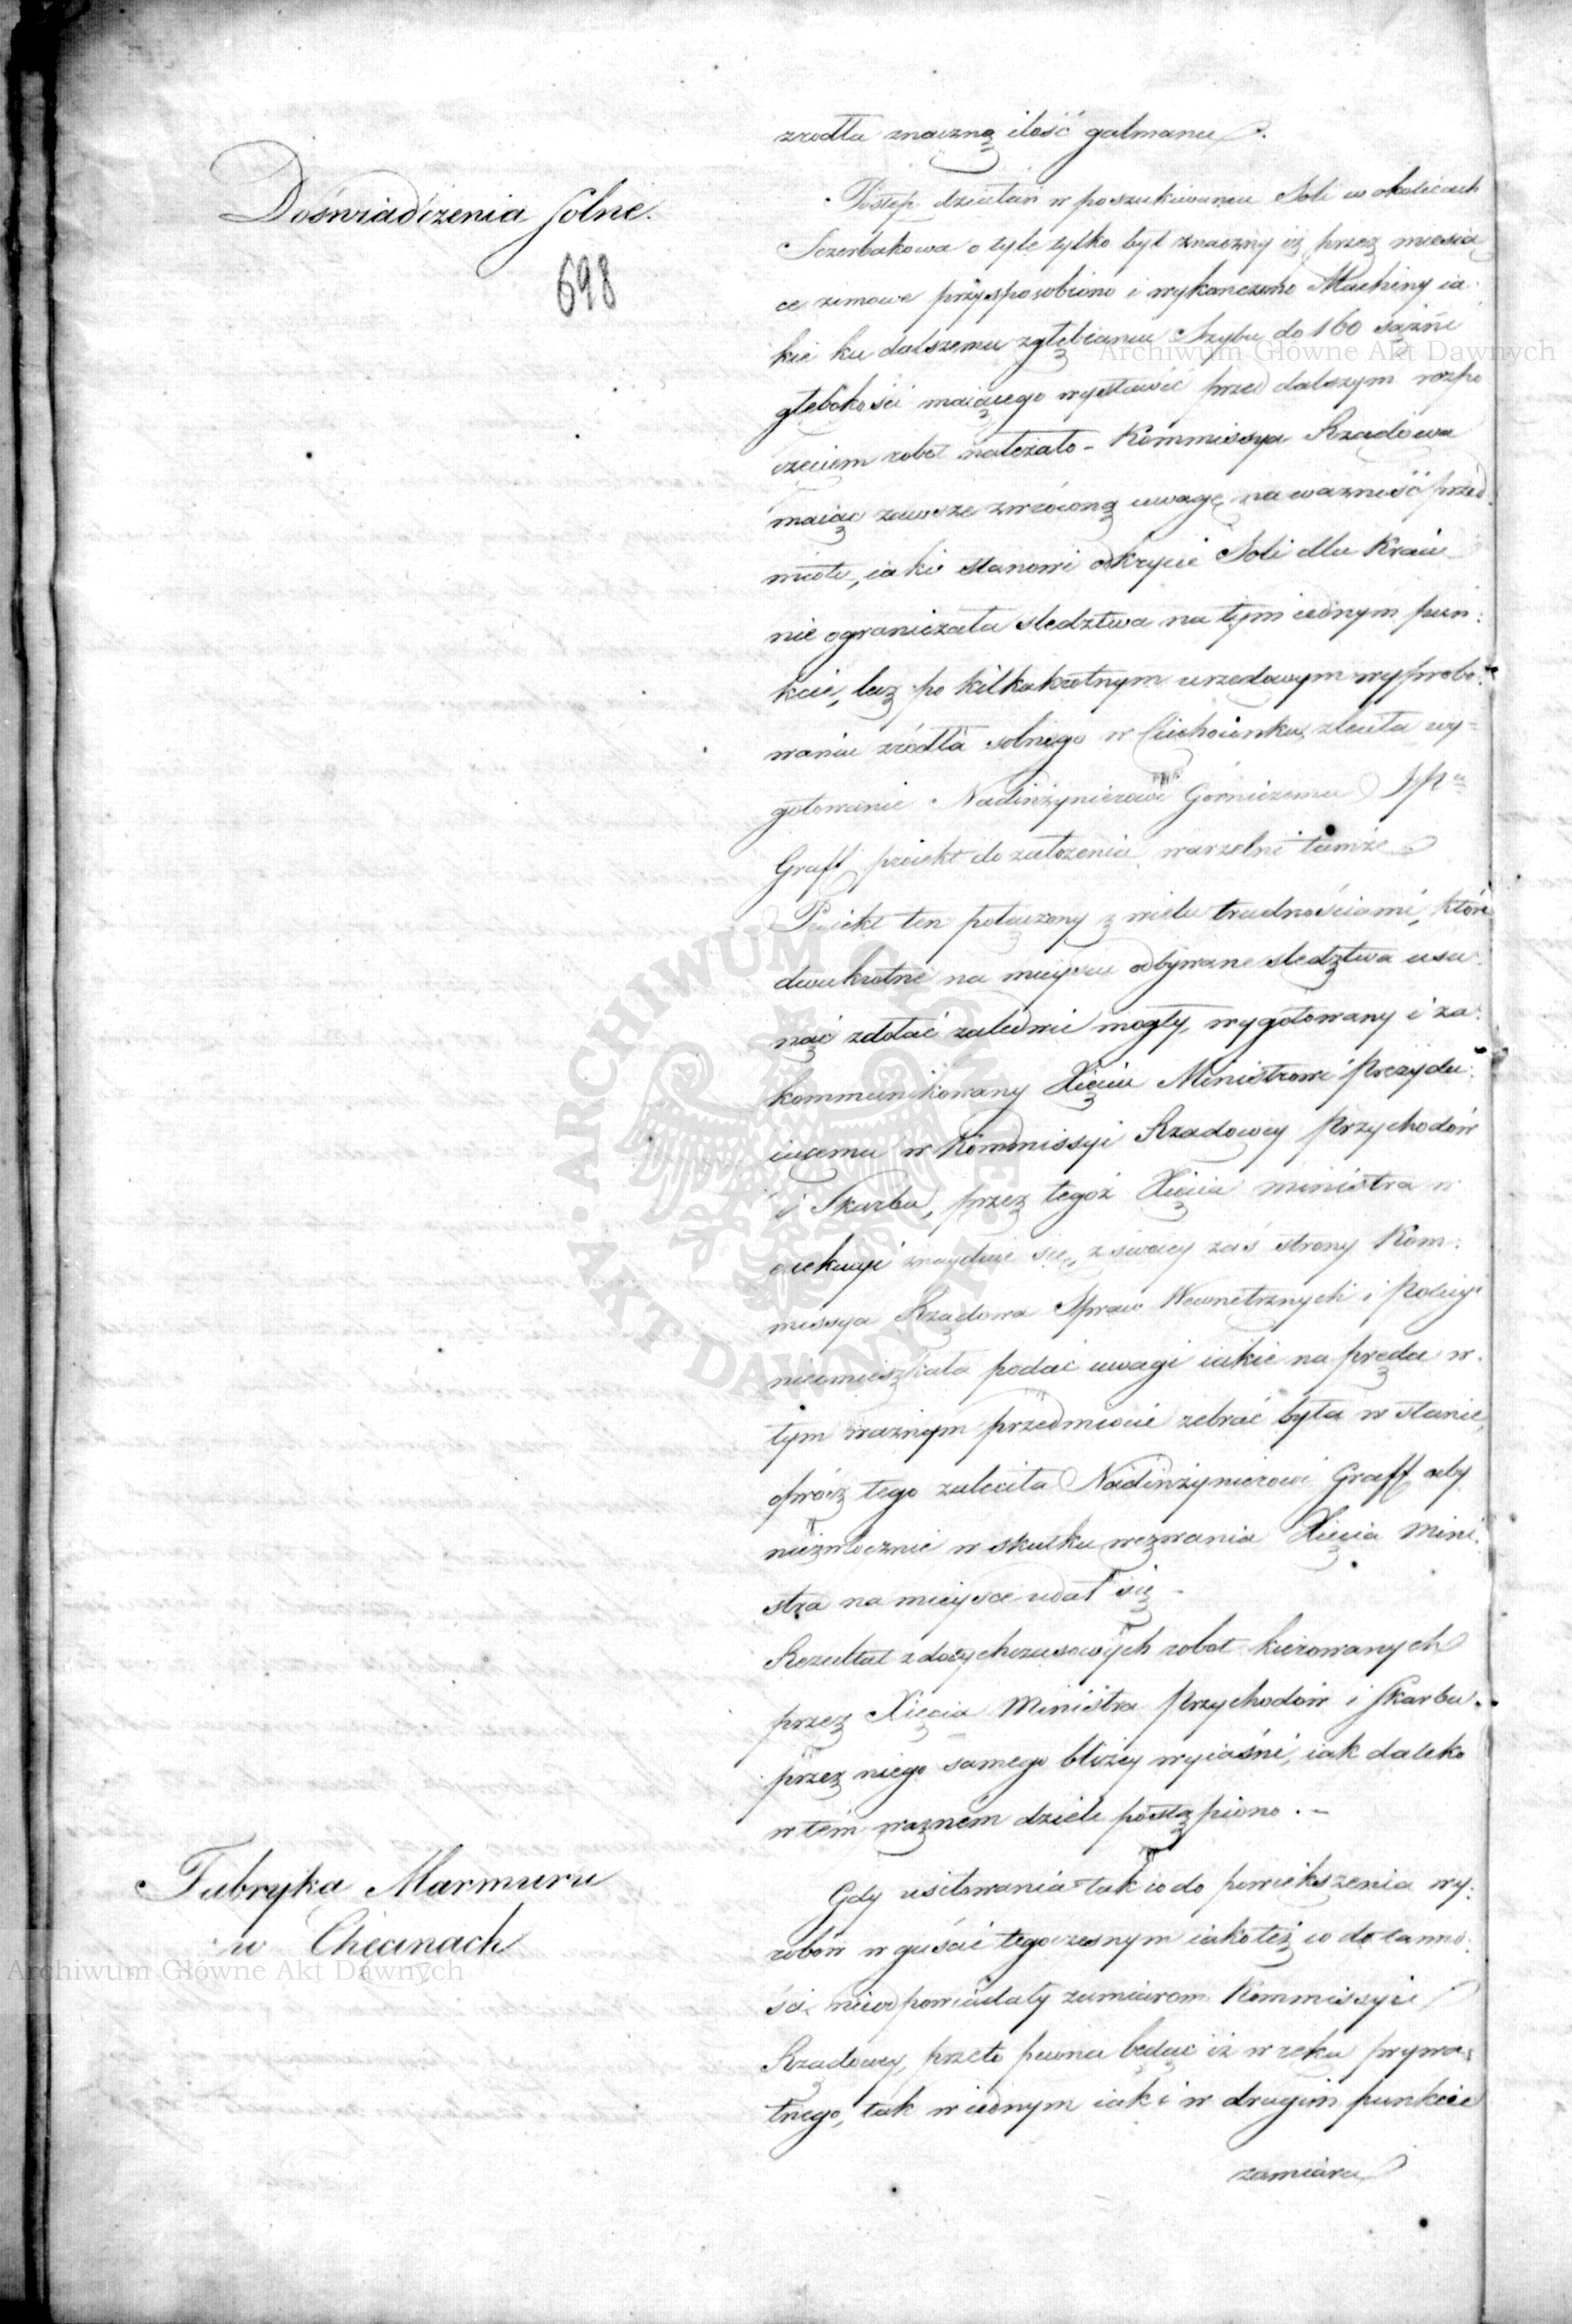 zrodła znaczną ilość galmanu.
Doświadczenia Solne.
698
Postęp działań w poszukiwaniu Soli w okolicach
Sczerbakowa o tyle tylko był znaczny iż przez miesią
ce zimowe przysposobiono i wykończono Machiny ia:
kie ku dalszemu zgłębianiu Szybu do 160 sążni
głębokości maiącego wystawić przed dalszym rozpo
częciem robot należało - Kommissya Rządowa
maiąc zawsze zwróconą uwagę na ważność przed
miotu, iaki stanowi odkrycie Soli dla Kraiu
nie ograniczała śledztwa na tym iednym pun:
kcie, lecz po kilkakrotnym urzędowym wyprobo:
waniu źródła solnego w Ciechocinku, zleciła wy=
gotowanie Nadinżynierowi Górniczemu JPu
Graff proiekt do założenia warzelni tamże
Proiekt ten połączony z wielu trudnościami, które
dwukrotne na mieyscu odbywane śledztwa usu:
nąć zdołać zaledwie mogły, wygotowany i za:
kommunikowany Xięciu Ministrowi Prezydu:
iącemu w Kommissyi Rządowey Przychodów
i Skarbu, przez tegoż Xięcia ministra w
exekucyi znayduie się, z swoiey zaś strony Kom:
missya Rządowa Spraw Wewnętrznych i Policyi
nieomieszkała podać uwagi iakie na prędce w
tym ważnym przedmiocie zebrać była w stanie,
oprócz tego zaleciła Nadinżynierowi Graff aby
niezwłocznie w skutku wezwania Xięcia Mini:
stra na mieysce udał się -
Rezultat z dotychczasowych robot kierowanych
przez Xięcia Ministra Przychodów i Skarbu
przez niego samego bliżey wyiaśni, iak daleko
w tém ważném dziele postąpiono. -
Fabryka Marmuru
w Chęcinach
Gdy usiłowania tak co do powiększenia wy:
robów w guście tegoczesnym iakoteż co do tannio:
ści nieodpowiadały zamiarom Kommissyi
Rządowey, przeto pewna będąc iż w ręku prywa:
tnego, tak w iednym iak i w drugim punkcie
zamiaru
Archiwum Główne Akt Dawnych
Archiwum Główne Akt Dawnych
ARCHIWUM GŁÓWNE AKT DAWNYCH